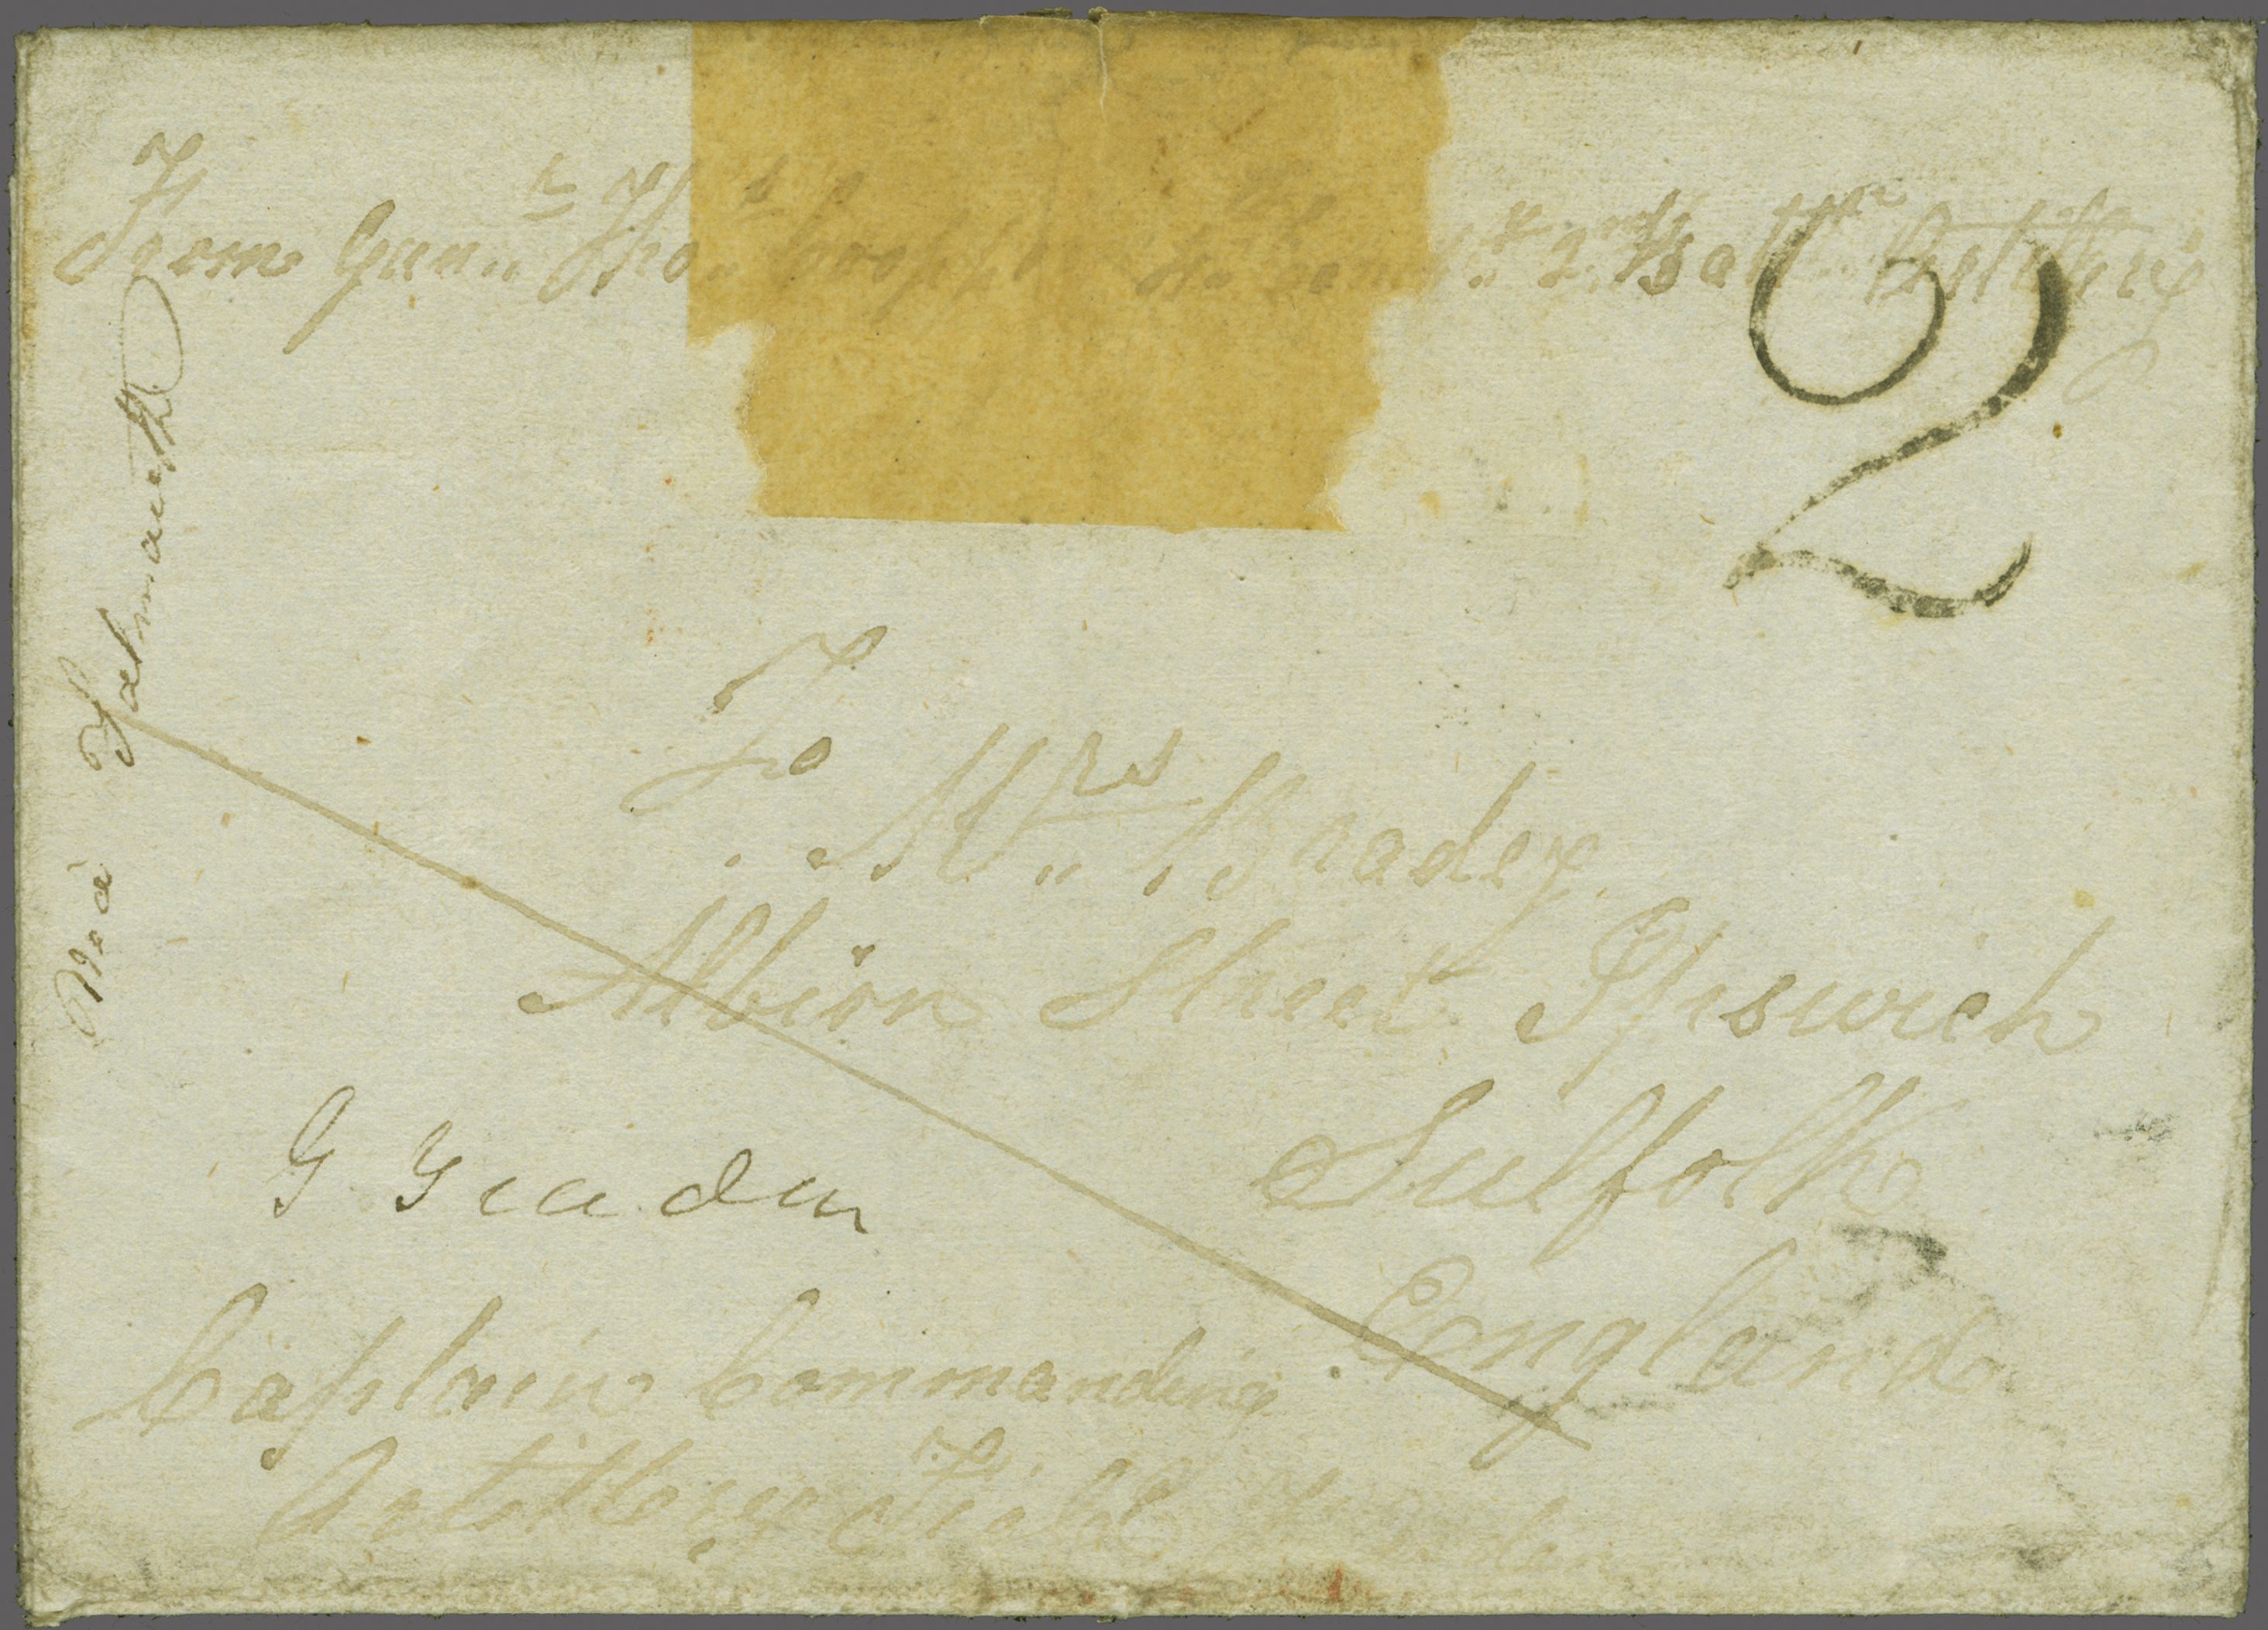 From Gunr Thos Cooper 2nd Battn Artillery
2
Via Falmouth
To
Mrs Bradey
Albion Street Ipswich
Sulfolk
England
G Graden
Captain Commanding
Artillery Field